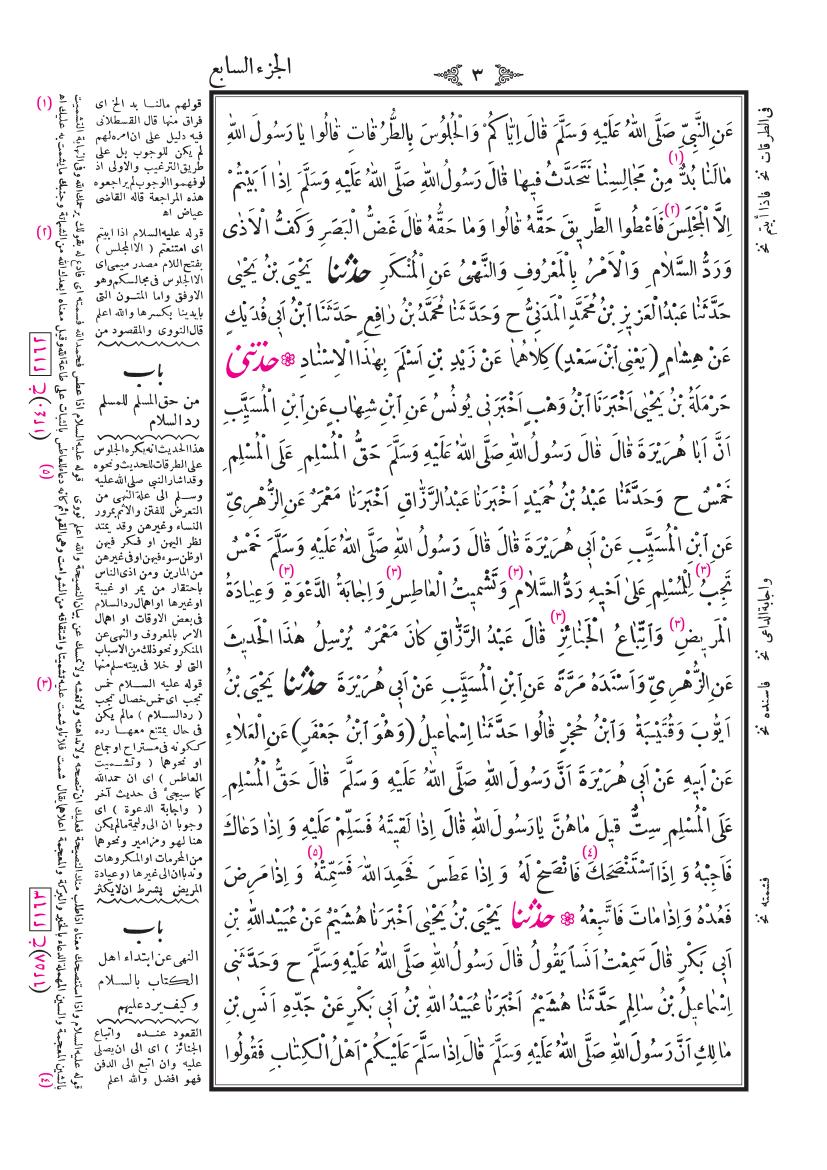 ٣
الجزء السابع
عَنِ النَّبِيِّ صَلَّى اللهُ عَلَيْهِ وَسَلَّمَ قَالَ اِيَّاكُمْ وَالْجُلُوسَ بِالطُّرُقَاتِ قَالُوا يَا رَسُولَ اللهِ
مَالَنَا بُدٌّ (١) مِنْ مَجَالِسِنَا نَتَحَدَّثُ فِيهَا قَالَ رَسُولُ اللهِ صَلَّى اللهُ عَلَيْهِ وَسَلَّمَ اِذَا اَبَيْتُمْ
اِلاَّ الْمَجْلِسَ (٢) فَاَعْطُوا الطَّرِيقَ حَقَّهُ قَالُوا وَمَا حَقُّهُ قَالَ غَضُّ الْبَصَرِ وَكَفُّ الْاَذٰى
وَرَدُّ السَّلاَمِ وَالْاَمْرُ بِالْمَعْرُوفِ وَالنَّهْىُ عَنِ الْمُنْكَرِ حَدَّثَنَا يَحْيَى بْنُ يَحْيٰى
حَدَّثَنَا عَبْدُ الْعَزِيزِ بْنُ مُحَمَّدٍ الْمَدَنِيُّ ح وَحَدَّثَنَا مُحَمَّدُ بْنُ رَافِعٍ حَدَّثَنَا ابْنُ اَبِى فُدَيْكٍ
عَنْ هِشَامٍ (يَعْنِى ابْنَ سَعْدٍ) كِلاَهُمَا عَنْ زَيْدِ بْنِ اَسْلَمَ بِهٰذَا الْاِسْنَادِ ۞ حَدَّثَنِى
حَرْمَلَةُ بْنُ يَحْيٰى اَخْبَرَنَا ابْنُ وَهْبٍ اَخْبَرَنِى يُونُسُ عَنِ ابْنِ شِهَابٍ عَنِ ابْنِ الْمُسَيَّبِ
اَنَّ اَبَا هُرَيْرَةَ قَالَ قَالَ رَسُولُ اللهِ صَلَّى اللهُ عَلَيْهِ وَسَلَّمَ حَقُّ الْمُسْلِمِ عَلَى الْمُسْلِمِ
خَمْسٌ ح وَحَدَّثَنَا عَبْدُ بْنُ حُمَيْدٍ اَخْبَرَنَا عَبْدُ الرَّزَّاقِ اَخْبَرَنَا مَعْمَرٌ عَنِ الزُّهْرِيِّ
عَنِ ابْنِ الْمُسَيَّبِ عَنْ اَبِى هُرَيْرَةَ قَالَ قَالَ رَسُولُ اللهِ صَلَّى اللهُ عَلَيْهِ وَسَلَّمَ خَمْسٌ
تَجِبُ (٣) لِلْمُسْلِمِ عَلٰى اَخِيهِ رَدُّ السَّلاَمِ (٣) وَتَشْمِيتُ الْعَاطِسِ (٣) وَاِجَابَةُ الدَّعْوَةِ (٣) وَعِيَادَةُ
الْمَرِيضِ (٣) وَاتِّبَاعُ الْجَنَائِزِ (٣) قَالَ عَبْدُ الرَّزَّاقِ كَانَ مَعْمَرٌ يُرْسِلُ هٰذَا الْحَدِيثَ
عَنِ الزُّهْرِيِّ وَاَسْنَدَهُ مَرَّةً عَنِ ابْنِ الْمُسَيَّبِ عَنْ اَبِى هُرَيْرَةَ حَدَّثَنَا يَحْيَى بْنُ
اَيُّوبَ وَقُتَيْبَةُ وَابْنُ حُجْرٍ قَالُوا حَدَّثَنَا اِسْمَاعِيلُ (وَهُوَ ابْنُ جَعْفَرٍ) عَنِ الْعَلاَءِ
عَنْ اَبِيهِ عَنْ اَبِى هُرَيْرَةَ اَنَّ رَسُولَ اللهِ صَلَّى اللهُ عَلَيْهِ وَسَلَّمَ قَالَ حَقُّ الْمُسْلِمِ
عَلَى الْمُسْلِمِ سِتٌّ قِيلَ مَا هُنَّ يَا رَسُولَ اللهِ قَالَ اِذَا لَقِيتَهُ فَسَلِّمْ عَلَيْهِ وَاِذَا دَعَاكَ
فَاَجِبْهُ وَاِذَا اسْتَنْصَحَكَ (٤) فَانْصَحْ لَهُ وَاِذَا عَطَسَ فَحَمِدَ اللهَ فَسَمِّتْهُ (٥) وَاِذَا مَرِضَ
فَعُدْهُ وَاِذَا مَاتَ فَاتَّبِعْهُ ۞ حَدَّثَنَا يَحْيَى بْنُ يَحْيٰى اَخْبَرَنَا هُشَيْمٌ عَنْ عُبَيْدِ اللهِ بْنِ
اَبِى بَكْرٍ قَالَ سَمِعْتُ اَنَساً يَقُولُ قَالَ رَسُولُ اللهِ صَلَّى اللهُ عَلَيْهِ وَسَلَّمَ ح وَحَدَّثَنِى
اِسْمَاعِيلُ بْنُ سَالِمٍ حَدَّثَنَا هُشَيْمٌ اَخْبَرَنَا عُبَيْدُ اللهِ بْنُ اَبِى بَكْرٍ عَنْ جَدِّهِ اَنَسِ بْنِ
مَالِكٍ اَنَّ رَسُولَ اللهِ صَلَّى اللهُ عَلَيْهِ وَسَلَّمَ قَالَ اِذَا سَلَّمَ عَلَيْكُمْ اَهْلُ الْكِتَابِ فَقُولُوا
فى الطرقات نخ فاذا أبيتم نخ
واجابة الداعى نخ فاسنده نخ
فشمته نخ
(١) قولهم مالنا بد الخ اى
فراق منها قال القسطلانى
فيه دليل على ان امره لهم
لم يكن للوجوب بل على
طريق الترغيب والاولى اذ
لو فهموا الوجوب لم يراجعوه
هذه المراجعة قاله القاضى
عياض اه
(٢) قوله عليه السلام اذا ابيتم
اى امتنعتم ( الا المجلس )
بفتح اللام مصدر ميمى اى
الا الجلوس فى مجالسكم وهو
الاوفق واما المتون التى
بايدينا بكسرها والله اعلم
قال النووى والمقصود من
باب
من حق المسلم للمسلم
رد السلام
هذا الحديث انه يكره الجلوس
على الطرقات للحديث ونحوه
وقد اشار النبي صلى الله عليه
وسلم الى علة النهى من
التعرض للفتن والاثم بمرور
النساء وغيرهن وقد يمتد
نظر اليهن او فكر فيهن
او ظن سوء فيهن او فى غيرهن
من المارين ومن اذى الناس
باحتقار من يمر او غيبة
او غيرها او اهمال رد السلام
فى بعض الاوقات او اهمال
الامر بالمعروف والنهى عن
المنكر ونحو ذلك من الاسباب
التى لو خلا فى بيته سلم منها
(٣) قوله عليه السلام خمس
تجب اى خمس خصال تجب
( رد السلام ) مالم يكن
فى حال يمتنع معها رده
ككونه فى مستراح او جماع
او نحوهما ( وتشميت
العاطس ) اى ان حمد الله
كما سيجئ فى حديث آخر
( واجابة الدعوة ) اى
وجوبا ان الى وليمة مالم يكن
هنا لهو ومزامير ونحوهما
من المحرمات او المكروهات
وندبا ان الى غيرها ( وعيادة
المريض بشرط ان لايكثر
باب
النهى عن ابتداء اهل
الكتاب بالسلام
وكيف يرد عليهم
القعود عنده واتباع
الجنائز ) اى الى ان يصلى
عليه وان اتبع الى الدفن
فهو افضل والله اعلم
(٤) قوله عليه السلام واذا استنصحك معناه اذا طلب منك النصيحة فعليك ان تنصحه ولا تداهنه ولا تغشه ولا تمسك عن بيان النصيحة والله اعلم نووى